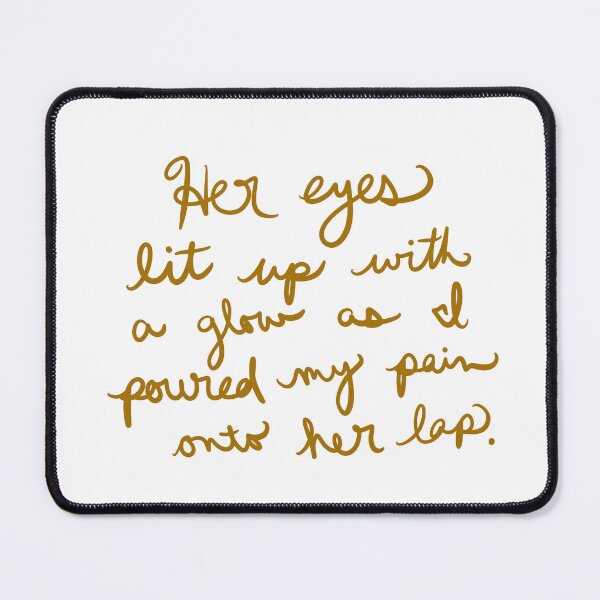 Her eyes
lit up with
a glow as I
poured my pain
onto her lap.